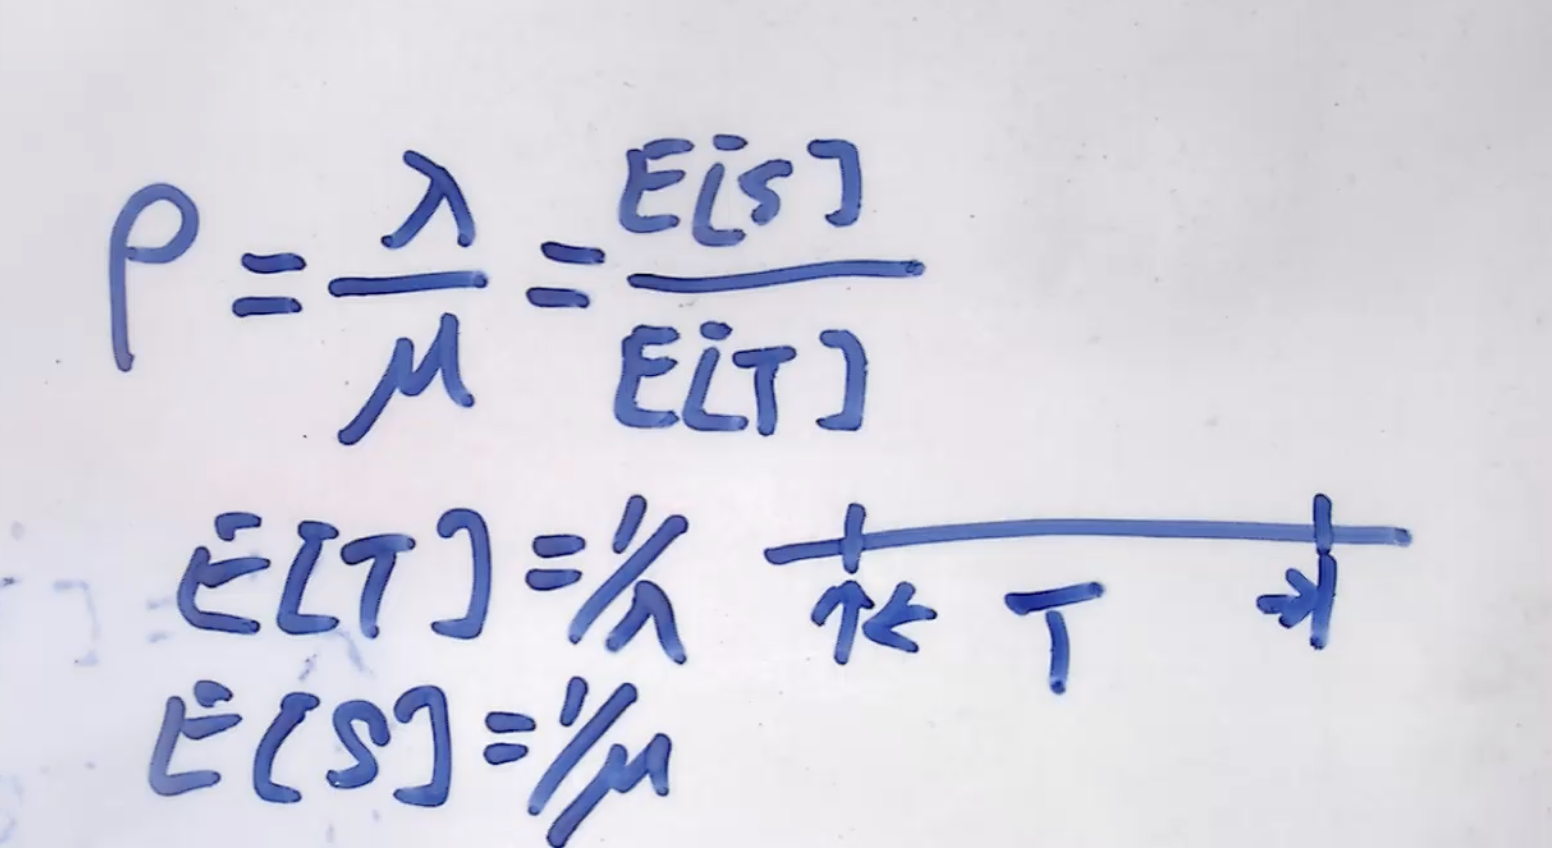 ρ = λ/μ = E[S]/E[T]
E[T] = 1/λ
T
E[S] = 1/μ